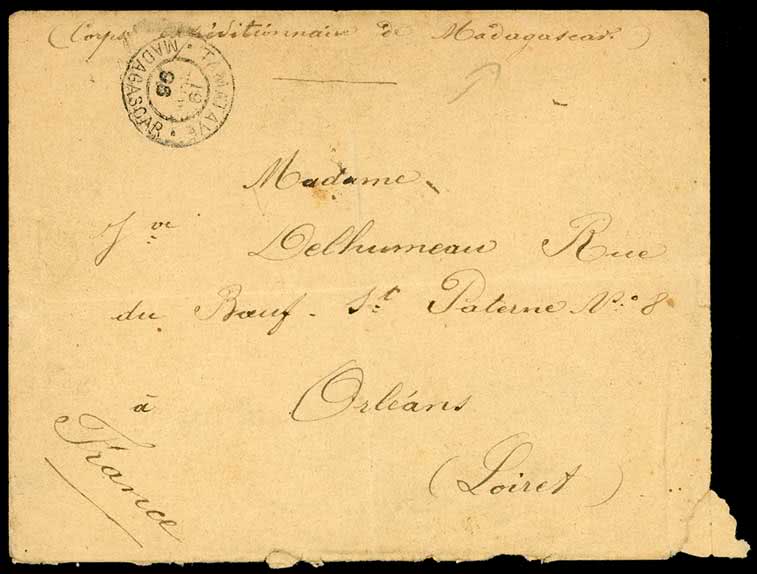 (Corps expéditionnaire de Madagascar)
TAMATAVE
19
96
MADAGASCAR
Madame
Vve Delhumeau Rue
du Bœuf - St Paterne No. 8
à Orléans
France
(Loiret)